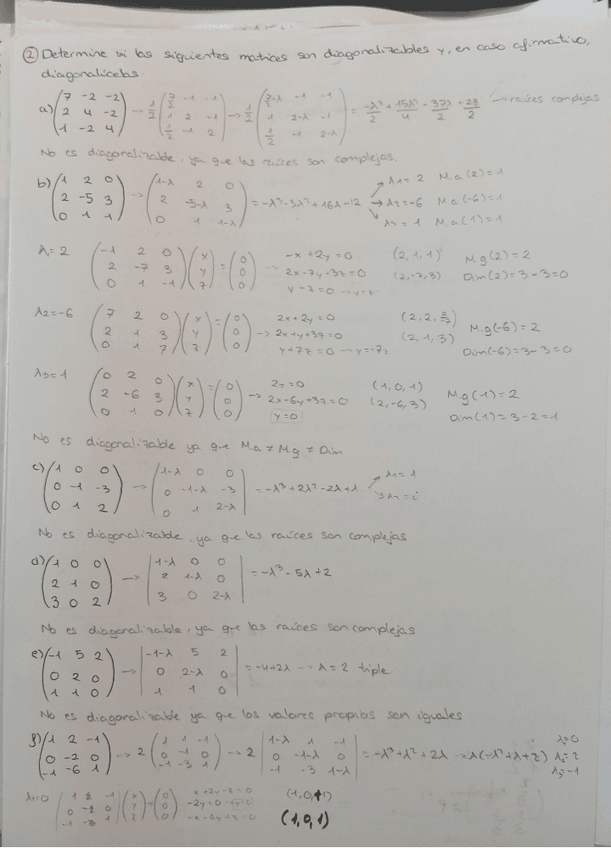 ② Determine si las siguientes matrices son diagonalizables y, en caso afirmativo,
diagonalícelas
a) (7 -2 -2 / 2 4 -2 / -1 -2 4) → 1/2 (7/2 -1 -1 / 1 2 -1 / 1/2 -1 2) → 1/2 (7/2-λ -1 -1 / 1 2-λ -1 / 1/2 -1 2-λ) = -λ³/2 + 15λ²/4 - 37λ/2 + 28/2 → raíces complejas
No es diagonalizable, ya que las raíces son complejas.
b) (1 2 0 / 2 -5 3 / 0 1 1) → (1-λ 2 0 / 2 -5-λ 3 / 0 1 1-λ) = -λ³-3λ²+16λ-12 → λ1=2 M.a(2)=1
λ2=-6 M.a(-6)=1
λ3=1 M.a(1)=1
λ1=2 (-1 2 0 / 2 -7 3 / 0 1 -1)(x / y / z)=(0 / 0 / 0) -x+2y=0 (2,1,1) Mg(2)=2
2x-7y+3z=0 (2,-7,3) Dim(2)=3-3=0
y-z=0 → y=z
λ2=-6 (7 2 0 / 2 1 3 / 0 1 7)(x / y / z)=(0 / 0 / 0) → 2x+2y=0
2x+y+3z=0 (2,1,3) M.g(-6)=2
y+7z=0 → y=-7z Dim(-6)=3-3=0
λ3=1 (0 2 0 / 2 -6 3 / 0 1 0)(x / y / z)=(0 / 0 / 0) → 2y=0 (1,0,1) M.g(-1)=2
2x-6y+3z=0 (2,-6,3) Dim(1)=3-2=1
y=0
No es diagonalizable ya que Ma ≠ Mg ≠ Dim
c) (1 0 0 / 0 -1 -3 / 0 1 2) → (1-λ 0 0 / 0 -1-λ -3 / 0 1 2-λ) = -λ³+2λ²-2λ+1 λ1=1
λ2=i
No es diagonalizable, ya que las raíces son complejas
d) (1 0 0 / 2 1 0 / 3 0 2) → |1-λ 0 0 / 2 1-λ 0 / 3 0 2-λ| = -λ³-5λ+2
No es diagonalizable, ya que las raíces son complejas
e) (-1 5 2 / 0 2 0 / 1 1 0) → |-1-λ 5 2 / 0 2-λ 0 / 1 1 0| = -4+2λ → λ=2 triple
No es diagonalizable ya que los valores propios son iguales
f) (1 2 -1 / 0 -2 0 / -1 -6 1) → 2 (1 1 -1 / 0 -1 0 / -1 -3 1) → 2 |1-λ 1 -1 / 0 -1-λ 0 / -1 -3 1-λ| = -λ³+λ²+2λ → λ(-λ²+λ+2) λ1=0
λ2=2
λ3=-1
λ1=0 (1 2 -1 / 0 -2 0 / -1 -6 1)(x / y / z)=(0 / 0 / 0) x+2y-z=0 (1,0,1)
-2y=0
-x-6y+z=0 (1,0,1)